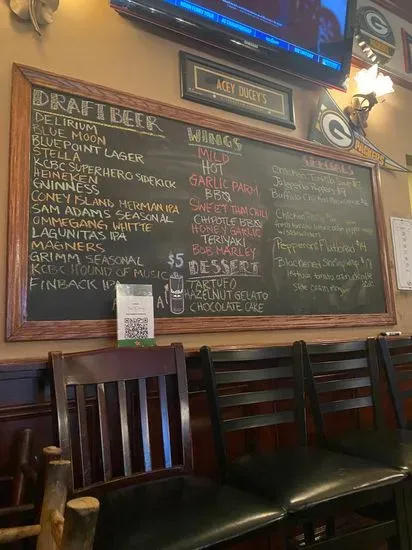 ACEY DUCEY'S
SAMSUNG
G
G
PACKERS
DRAFT BEER
DELIRIUM
BLUE MOON
BLUEPOINT LAGER
STELLA
KCBC SUPERHERO SIDEKICK
HEINEKEN
GUINNESS
CONEY ISLAND MERMAN IPA
SAM ADAMS SEASONAL
OMMEGANG WHITTE
LAGUNITAS IPA
MAGNERS
GRIMM SEASONAL
KCBC HOUND OF MUSIC
FINBACK IPA
$5
WINGS
MILD
HOT
GARLIC PARM
BBQ
SWEET THAI CHILI
CHIPOTLE BBQ
HONEY GARLIC
TERIYAKI
BOB MARLEY
DESSERT
TARTUFO
HAZELNUT GELATO
CHOCOLATE CAKE
SPECIALS
Chicken Tortilla Soup
Jalapeño Poppers
Buffalo Chicken
Chicken
Pepperoni Flatbread $14
Blackened Shrimp Wrap
lettuce tomato